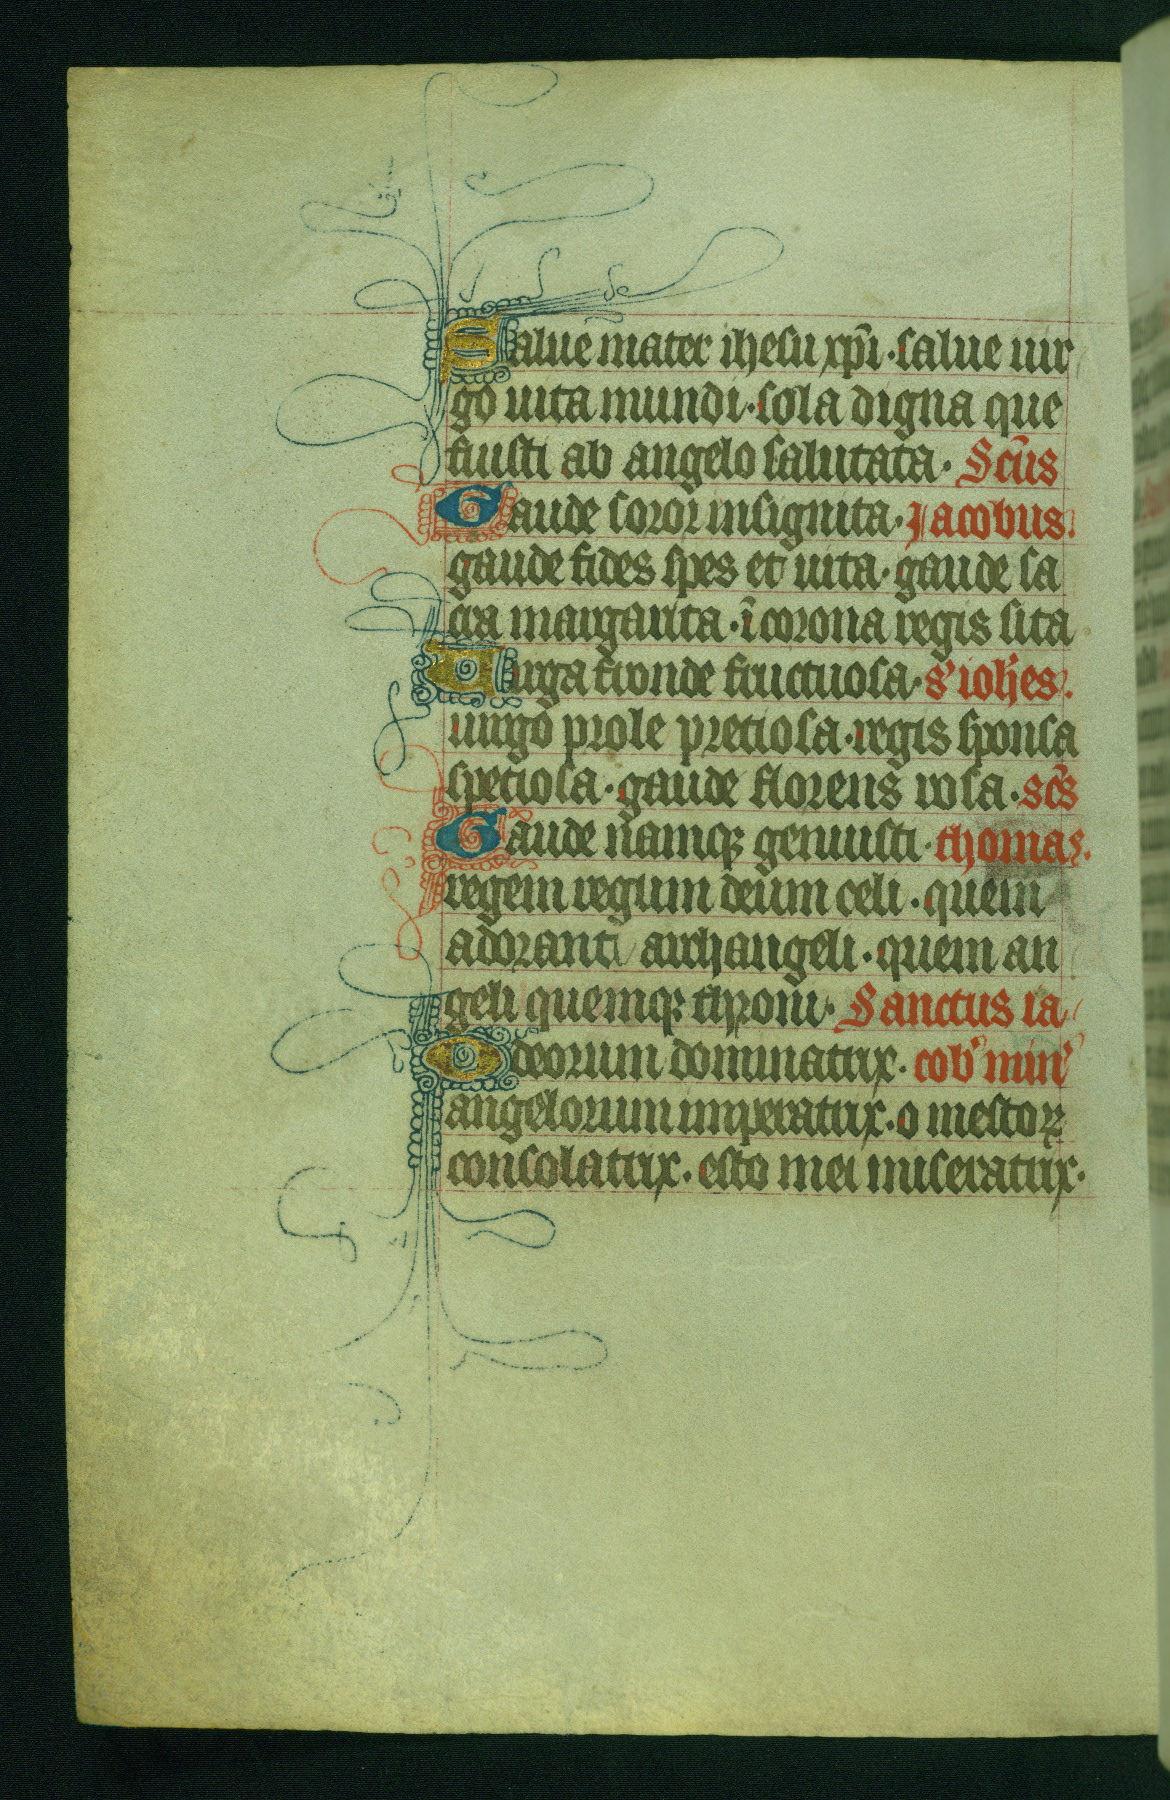 Salue mater ihesu xp̄i · salue uir
go uita mundi · sola digna que
fuisti ab angelo salutata · Sc̄us
Gaude soror insignita · Jacobus.
gaude fides spes et uita · gaude sa
cra margarita · ī corona regis sita
Uirga fronde fructuosa · s' ioh̄es.
uirgo prole pretiosa · regis sponsa
speciosa · gaude florens rosa · sc̄s
Gaude namqꝫ genuisti · thomas.
regem regum deum celi · quem
adorant archangeli · quem an
geli quemqꝫ throni · Sanctus ia
O deorum dominatrix · cob' min'
angelorum imperatrix · o mestoꝝ
consolatrix · esto mei miseratrix ·